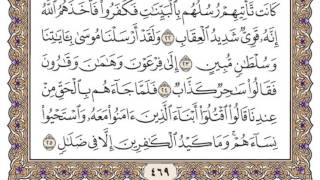 كَانَت تَّأْتِيهِمْ رُسُلُهُم بِٱلْبَيِّنَٰتِ فَكَفَرُوا۟ فَأَخَذَهُمُ ٱللَّهُ
إِنَّهُۥ قَوِىٌّ شَدِيدُ ٱلْعِقَابِ ٢٢ وَلَقَدْ أَرْسَلْنَا مُوسَىٰ بِـَٔايَٰتِنَا
وَسُلْطَٰنٍ مُّبِينٍ ٢٣ إِلَىٰ فِرْعَوْنَ وَهَٰمَٰنَ وَقَٰرُونَ
فَقَالُوا۟ سَٰحِرٌ كَذَّابٌ ٢٤ فَلَمَّا جَآءَهُم بِٱلْحَقِّ مِنْ
عِندِنَا قَالُوا۟ ٱقْتُلُوٓا۟ أَبْنَآءَ ٱلَّذِينَ ءَامَنُوا۟ مَعَهُۥ وَٱسْتَحْيُوا۟
نِسَآءَهُمْ وَمَا كَيْدُ ٱلْكَٰفِرِينَ إِلَّا فِى ضَلَٰلٍ ٢٥
٤٦٩